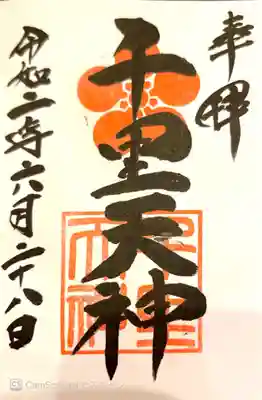 奉拝
千里天神
千里
天神
令和二年六月二十八日
CamScanner